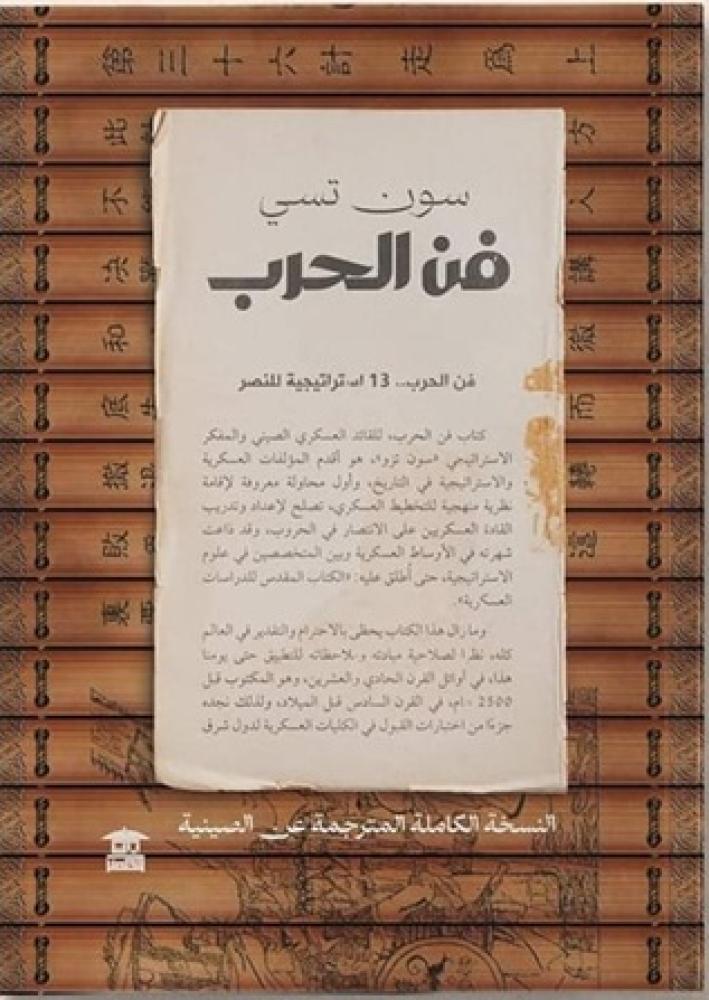 第三十六計 走為上
سون تسي
فن الحرب
فن الحرب.. 13 استراتيجية للنصر
كتاب فن الحرب، للقائد العسكري الصيني والمفكر
الاستراتيجي «سون تزو»، هو أقدم المؤلفات العسكرية
والاستراتيجية في التاريخ، وأول محاولة معروفة لإقامة
نظرية منهجية للتخطيط العسكري، تصلح لإعداد وتدريب
القادة العسكريين على الانتصار في الحروب، وقد ذاعت
شهرته في الأوساط العسكرية وبين المتخصصين في علوم
الاستراتيجية، حتى أُطلق عليه: «الكتاب المقدس للدراسات
العسكرية».
وما زال هذا الكتاب يحظى بالاحترام والتقدير في العالم
كله، نظرا لصلاحية مبادئه وملاحظاته للتطبيق حتى يومنا
هذا، في أوائل القرن الحادي والعشرين، وهو المكتوب قبل
2500 عام، في القرن السادس قبل الميلاد، ولذلك نجده
جزءًا من اختبارات القبول في الكليات العسكرية لدول شرق
النسخة الكاملة المترجمة عن الصينية